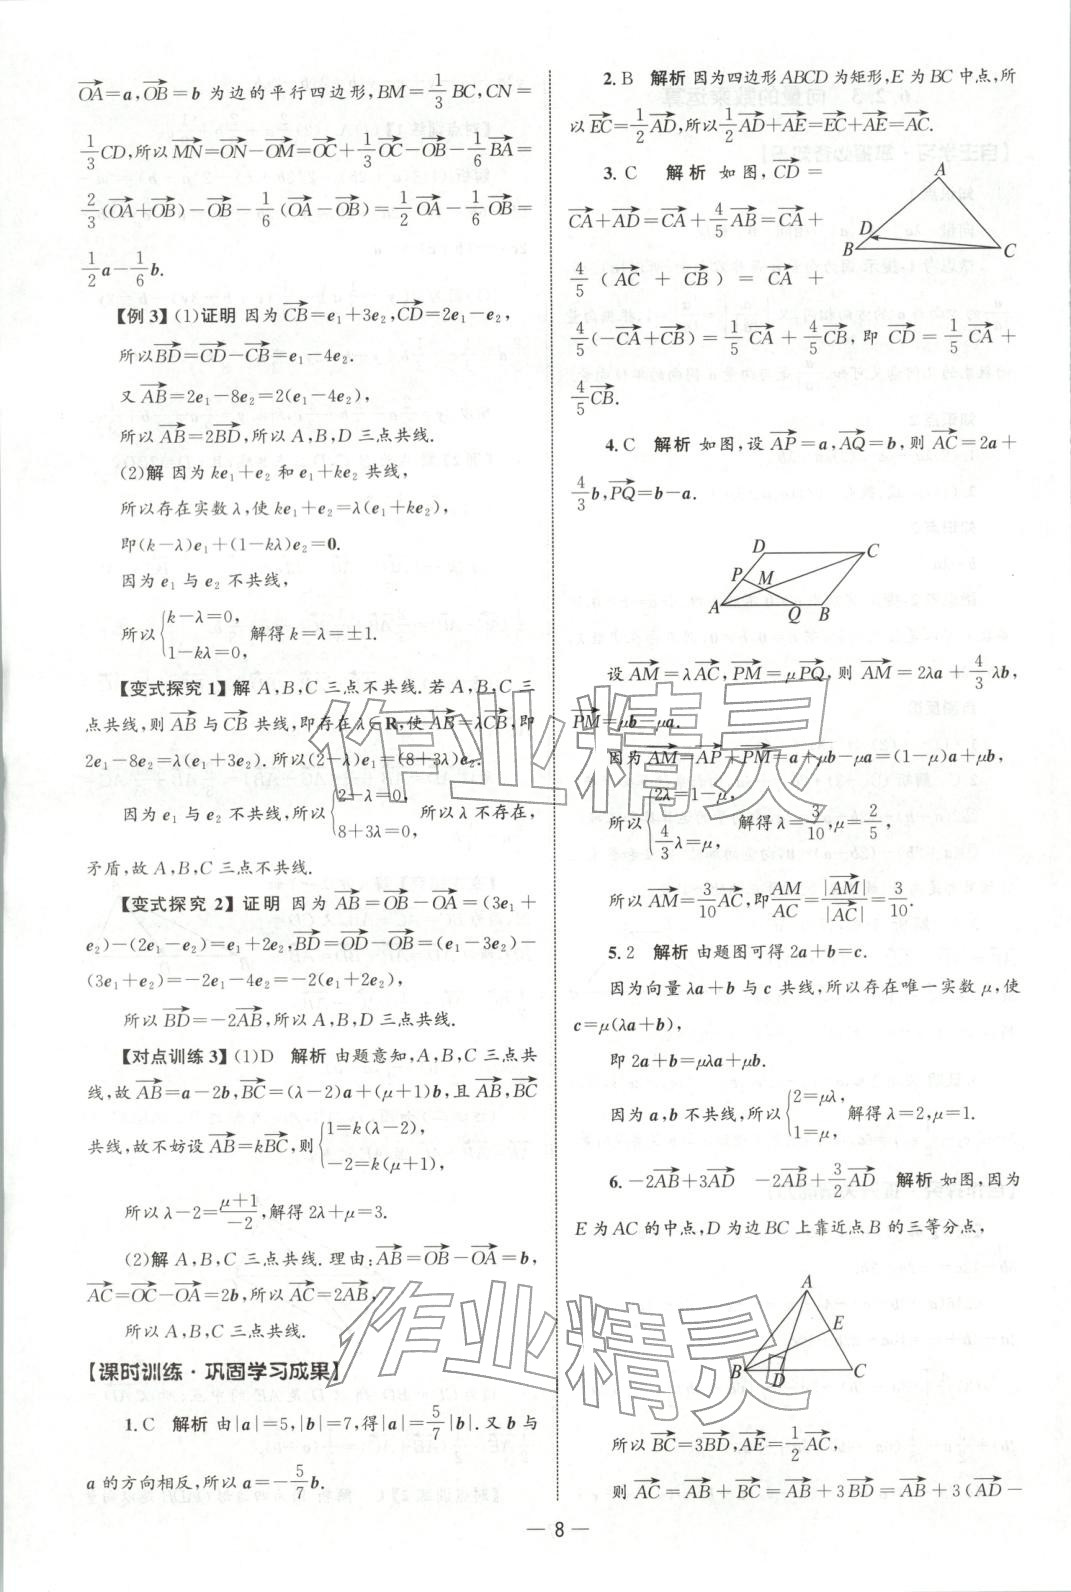 $\overrightarrow{OA}=a,\overrightarrow{OB}=b$ 为边的平行四边形,$BM=\frac{1}{3}BC,CN=$
$\frac{1}{3}CD$,所以$\overrightarrow{MN}=\overrightarrow{ON}-\overrightarrow{OM}=\overrightarrow{OC}+\frac{1}{3}\overrightarrow{OC}-\overrightarrow{OB}-\frac{1}{6}\overrightarrow{BA}=$
$\frac{2}{3}(\overrightarrow{OA}+\overrightarrow{OB})-\overrightarrow{OB}-\frac{1}{6}(\overrightarrow{OA}-\overrightarrow{OB})=\frac{1}{2}\overrightarrow{OA}-\frac{1}{6}\overrightarrow{OB}=$
$\frac{1}{2}a-\frac{1}{6}b.$
【例 3】(1)证明 因为$\overrightarrow{CB}=e_1+3e_2,\overrightarrow{CD}=2e_1-e_2,$
所以$\overrightarrow{BD}=\overrightarrow{CD}-\overrightarrow{CB}=e_1-4e_2.$
又$\overrightarrow{AB}=2e_1-8e_2=2(e_1-4e_2),$
所以$\overrightarrow{AB}=2\overrightarrow{BD}$,所以 A,B,D 三点共线.
(2)解 因为 $ke_1+e_2$ 和 $e_1+ke_2$ 共线,
所以存在实数 λ,使 $ke_1+e_2=λ(e_1+ke_2),$
即$(k-λ)e_1+(1-kλ)e_2=0.$
因为 $e_1$ 与 $e_2$ 不共线,
所以$\begin{cases}k-λ=0,\\1-kλ=0,\end{cases}$解得 $k=λ=±1.$
【变式探究 1】解 A,B,C 三点不共线.若 A,B,C 三
点共线,则$\overrightarrow{AB}$与$\overrightarrow{CB}$共线,即存在 λ∈R,使$\overrightarrow{AB}=λ\overrightarrow{CB}$,即
$2e_1-8e_2=λ(e_1+3e_2).$所以$(2-λ)e_1=(8+3λ)e_2.$
因为 $e_1$ 与 $e_2$ 不共线,所以$\begin{cases}2-λ=0,\\8+3λ=0,\end{cases}$所以 λ 不存在,
矛盾,故 A,B,C 三点不共线.
【变式探究 2】证明 因为$\overrightarrow{AB}=\overrightarrow{OB}-\overrightarrow{OA}=(3e_1+$
$e_2)-(2e_1-e_2)=e_1+2e_2,\overrightarrow{BD}=\overrightarrow{OD}-\overrightarrow{OB}=(e_1-3e_2)-$
$(3e_1+e_2)=-2e_1-4e_2=-2(e_1+2e_2),$
所以$\overrightarrow{BD}=-2\overrightarrow{AB}$,所以 A,B,D 三点共线.
【对点训练 3】(1)D 解析 由题意知,A,B,C 三点共
线,故$\overrightarrow{AB}=a-2b,\overrightarrow{BC}=(λ-2)a+(μ+1)b$,且$\overrightarrow{AB},\overrightarrow{BC}$
共线,故不妨设$\overrightarrow{AB}=k\overrightarrow{BC}$,则$\begin{cases}1=k(λ-2),\\-2=k(μ+1),\end{cases}$
所以 $λ-2=\frac{μ+1}{-2}$,解得 $2λ+μ=3.$
(2)解 A,B,C 三点共线.理由:$\overrightarrow{AB}=\overrightarrow{OB}-\overrightarrow{OA}=b,$
$\overrightarrow{AC}=\overrightarrow{OC}-\overrightarrow{OA}=2b$,所以$\overrightarrow{AC}=2\overrightarrow{AB},$
所以 A,B,C 三点共线.
【课时训练·巩固学习成果】
1.C 解析 由$|a|=5,|b|=7$,得$|a|=\frac{5}{7}|b|$.又 b 与
a 的方向相反,所以 $a=-\frac{5}{7}b.$
2.B 解析 因为四边形 ABCD 为矩形,E 为 BC 中点,所
以$\overrightarrow{EC}=\frac{1}{2}\overrightarrow{AD}$,所以$\frac{1}{2}\overrightarrow{AD}+\overrightarrow{AE}=\overrightarrow{EC}+\overrightarrow{AE}=\overrightarrow{AC}.$
3.C 解析 如图,$\overrightarrow{CD}=$
$\overrightarrow{CA}+\overrightarrow{AD}=\overrightarrow{CA}+\frac{4}{5}\overrightarrow{AB}=\overrightarrow{CA}+$
$\frac{4}{5}(\overrightarrow{AC}+\overrightarrow{CB})=\overrightarrow{CA}+$
$\frac{4}{5}(-\overrightarrow{CA}+\overrightarrow{CB})=\frac{1}{5}\overrightarrow{CA}+\frac{4}{5}\overrightarrow{CB}$,即$\overrightarrow{CD}=\frac{1}{5}\overrightarrow{CA}+$
$\frac{4}{5}\overrightarrow{CB}.$
A
D
B
C
4.C 解析 如图,设$\overrightarrow{AP}=a,\overrightarrow{AQ}=b$,则$\overrightarrow{AC}=2a+$
$\frac{4}{3}b,\overrightarrow{PQ}=b-a.$
D C
P M
A Q B
设$\overrightarrow{AM}=λ\overrightarrow{AC},\overrightarrow{PM}=μ\overrightarrow{PQ}$,则$\overrightarrow{AM}=2λa+\frac{4}{3}λb,$
$\overrightarrow{PM}=μb-μa.$
因为$\overrightarrow{AM}=\overrightarrow{AP}+\overrightarrow{PM}=a+μb-μa=(1-μ)a+μb,$
所以$\begin{cases}2λ=1-μ,\\\frac{4}{3}λ=μ,\end{cases}$解得 $λ=\frac{3}{10},μ=\frac{2}{5},$
所以$\overrightarrow{AM}=\frac{3}{10}\overrightarrow{AC}$,即$\frac{AM}{AC}=\frac{|\overrightarrow{AM}|}{|\overrightarrow{AC}|}=\frac{3}{10}.$
5.2 解析 由题图可得 $2a+b=c.$
因为向量 $λa+b$ 与 c 共线,所以存在唯一实数 μ,使
$c=μ(λa+b),$
即 $2a+b=μλa+μb.$
因为 a,b 不共线,所以$\begin{cases}2=μλ,\\1=μ,\end{cases}$解得 $λ=2,μ=1.$
6.$-2\overrightarrow{AB}+3\overrightarrow{AD}$ $-2\overrightarrow{AB}+\frac{3}{2}\overrightarrow{AD}$ 解析 如图,因为
E 为 AC 的中点,D 为边 BC 上靠近点 B 的三等分点,
A
E
B D C
所以$\overrightarrow{BC}=3\overrightarrow{BD},\overrightarrow{AE}=\frac{1}{2}\overrightarrow{AC},$
则$\overrightarrow{AC}=\overrightarrow{AB}+\overrightarrow{BC}=\overrightarrow{AB}+3\overrightarrow{BD}=\overrightarrow{AB}+3(\overrightarrow{AD}-$
— 8 —
作业精灵
作业精灵